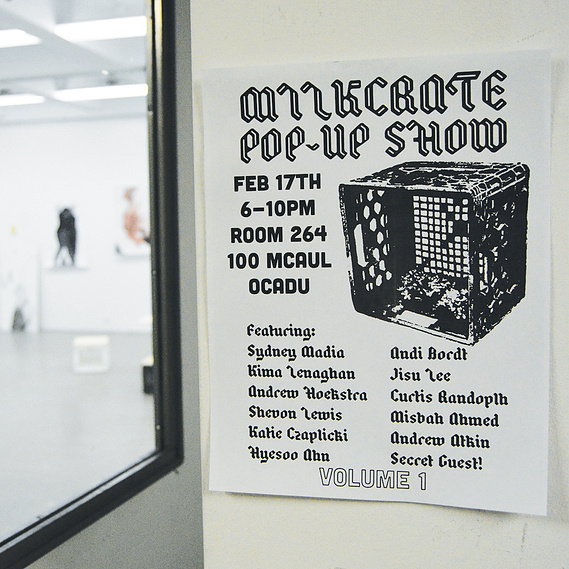 MILKCRATE
POP-UP SHOW
FEB 17TH
6-10PM
ROOM 264
100 MCAUL
OCADU
Featuring:
Sydney Madia
Kima Lenaghan
Andrew Hoekstra
Shevon Lewis
Katie Czaplicki
Hyesoo Ahn
Andi Bordt
Jisu Lee
Curtis Randoplh
Misbah Ahmed
Andrew Atkin
Secret Guest!
VOLUME 1